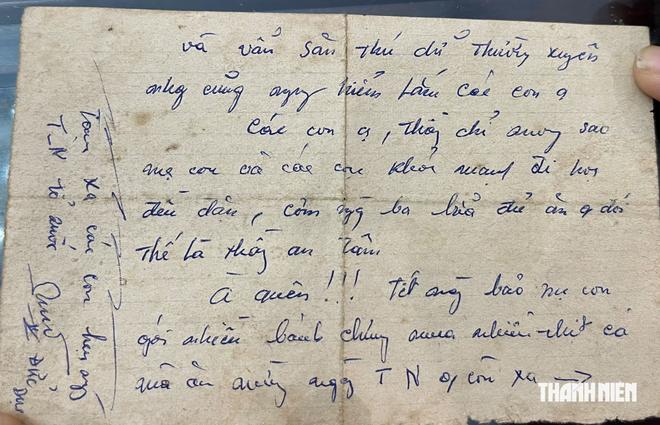 và vẫn sẵn thú dữ thường xuyên
nhg cũng nguy hiểm lắm các con ạ
Các con ạ, thầy chỉ mong sao
mẹ con và các con khỏe mạnh đi học
đều đặn, cơm ngày ba bữa đủ ăn ạ đói
thế là thầy an tâm
À quên!!! Tết này bảo mẹ con
gói nhiều bánh chưng mua nhiều thịt cá
mà ăn mừng ngày T N ạ còn xa →
Tạm xa các con hẹn ngày
T-N tổ quốc
Đức
THANH NIÊN